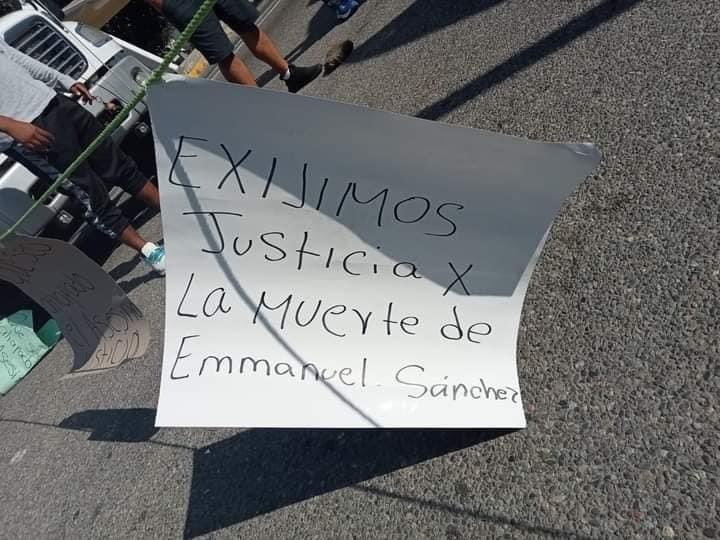 EXIJIMOS
Justicia x
La Muerte de
Emmanuel. Sánchez